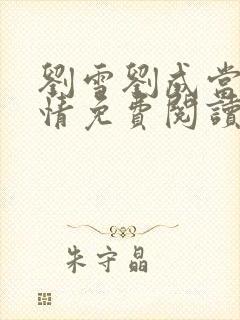 劉雪劉成當
情免費閱讀
朱守晶